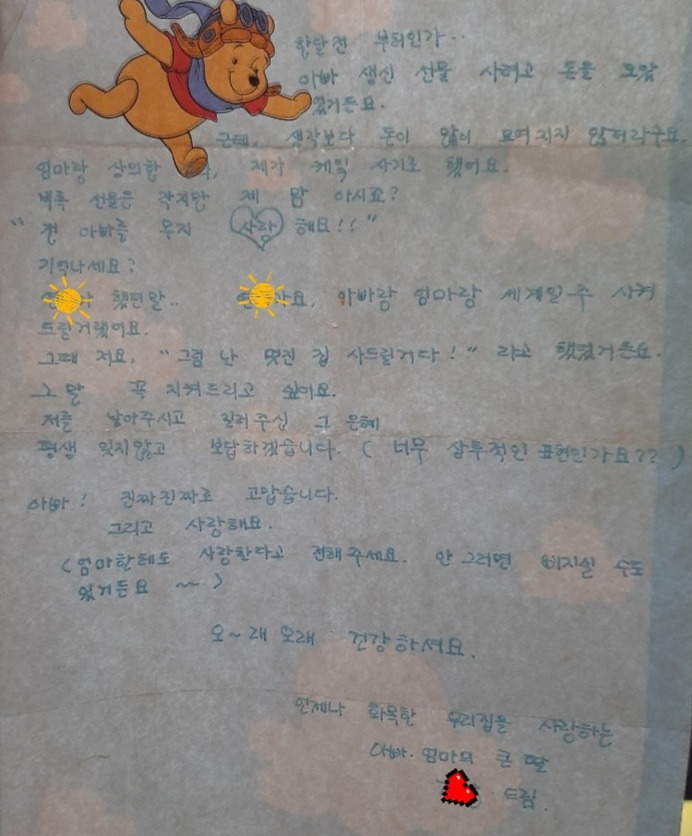 한달 전 부터인가..
아빠 생신 선물 사려고 돈을 모았
었거든요.
근데, 생각보다 돈이 많이 모여지지 않더라구요.
엄마랑 상의한 제가 케익 사기로 했어요.
비록 선물은 작지만 제 맘 아시죠?
"전 아빠를 무지 사랑 해요!!"
기억나세요?
했던말.. 아빠랑 엄마랑 세계일주 시켜
드릴거랬어요.
그때 저요, "그럼 난 멋진 집 사드릴거다!" 라고 했었거든요.
그 말 꼭 지켜드리고 싶어요.
저를 낳아주시고 길러주신 그 은혜
평생 잊지않고 보답하겠습니다. ( 너무 상투적인 표현인가요?? )
아빠! 진짜진짜로 고맙습니다.
그리고 사랑해요.
(엄마한테도 사랑한다고 전해주세요. 안 그러면 삐지실 수도
있거든요 ~~ )
오~래 오래 건강하셔요.
언제나 화목한 우리집을 사랑하는
아빠. 엄마의 큰 딸
드림.